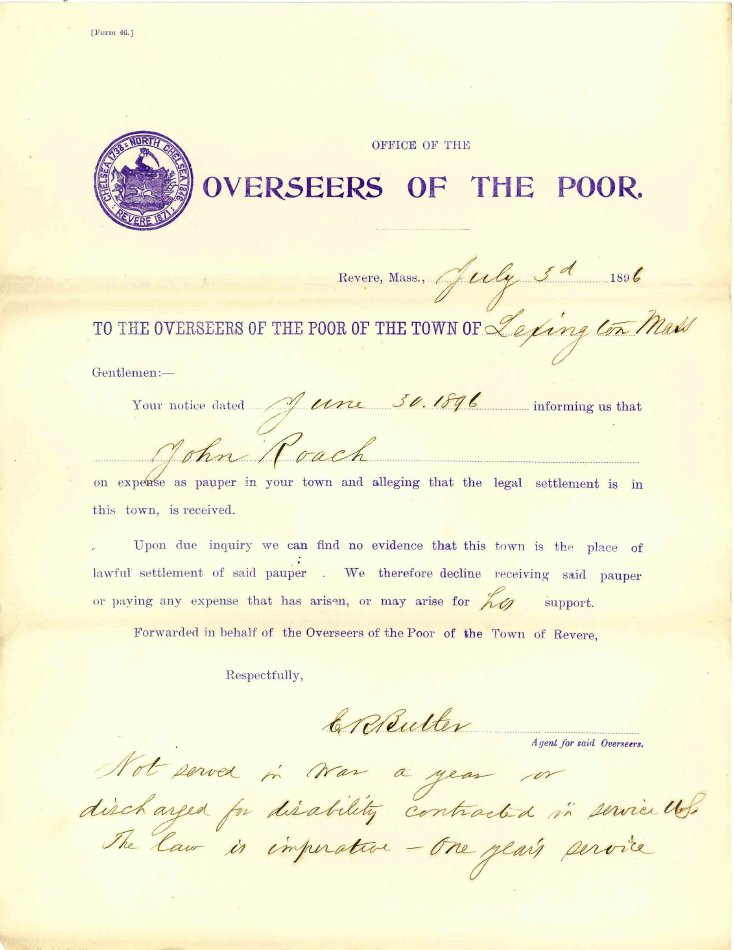 [Form 46.]
CHELSEA 1738 : NORTH CHELSEA 1846 : REVERE 1871 :
OFFICE OF THE
OVERSEERS OF THE POOR.
Revere, Mass., July 3d 1896
TO THE OVERSEERS OF THE POOR OF THE TOWN OF Lexington Mass
Gentlemen:—
Your notice dated June 30. 1896 informing us that
John Roach
on expense as pauper in your town and alleging that the legal settlement is in
this town, is received.
Upon due inquiry we can find no evidence that this town is the place of
lawful settlement of said pauper . We therefore decline receiving said pauper
or paying any expense that has arisen, or may arise for his support.
Forwarded in behalf of the Overseers of the Poor of the Town of Revere,
Respectfully,
E R Butler
Agent for said Overseers.
Not served in War a year or
discharged for disability contracted in service US
The law is imperative — One year's service